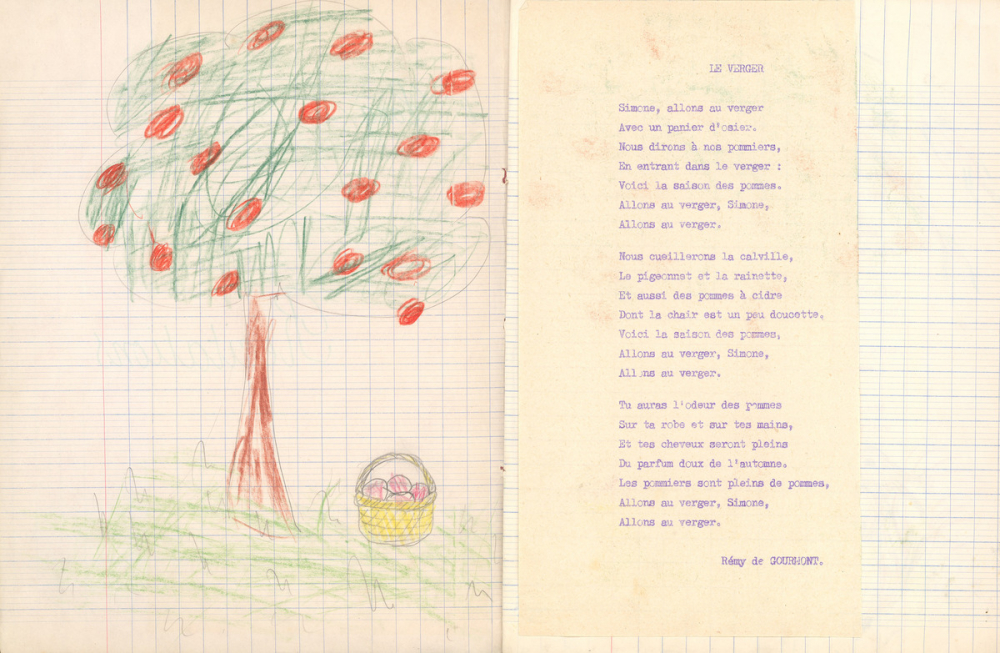 LE VERGER
Simone, allons au verger
Avec un panier d'osier.
Nous dirons à nos pommiers,
En entrant dans le verger :
Voici la saison des pommes.
Allons au verger, Simone,
Allons au verger.
Nous cueillerons la calville,
Le pigeonnet et la rainette,
Et aussi des pommes à cidre
Dont la chair est un peu doucette.
Voici la saison des pommes,
Allons au verger, Simone,
Allons au verger.
Tu auras l'odeur des pommes
Sur ta robe et sur tes mains,
Et tes cheveux seront pleins
Du parfum doux de l'automne.
Les pommiers sont pleins de pommes,
Allons au verger, Simone,
Allons au verger.
Rémy de GOURMONT.